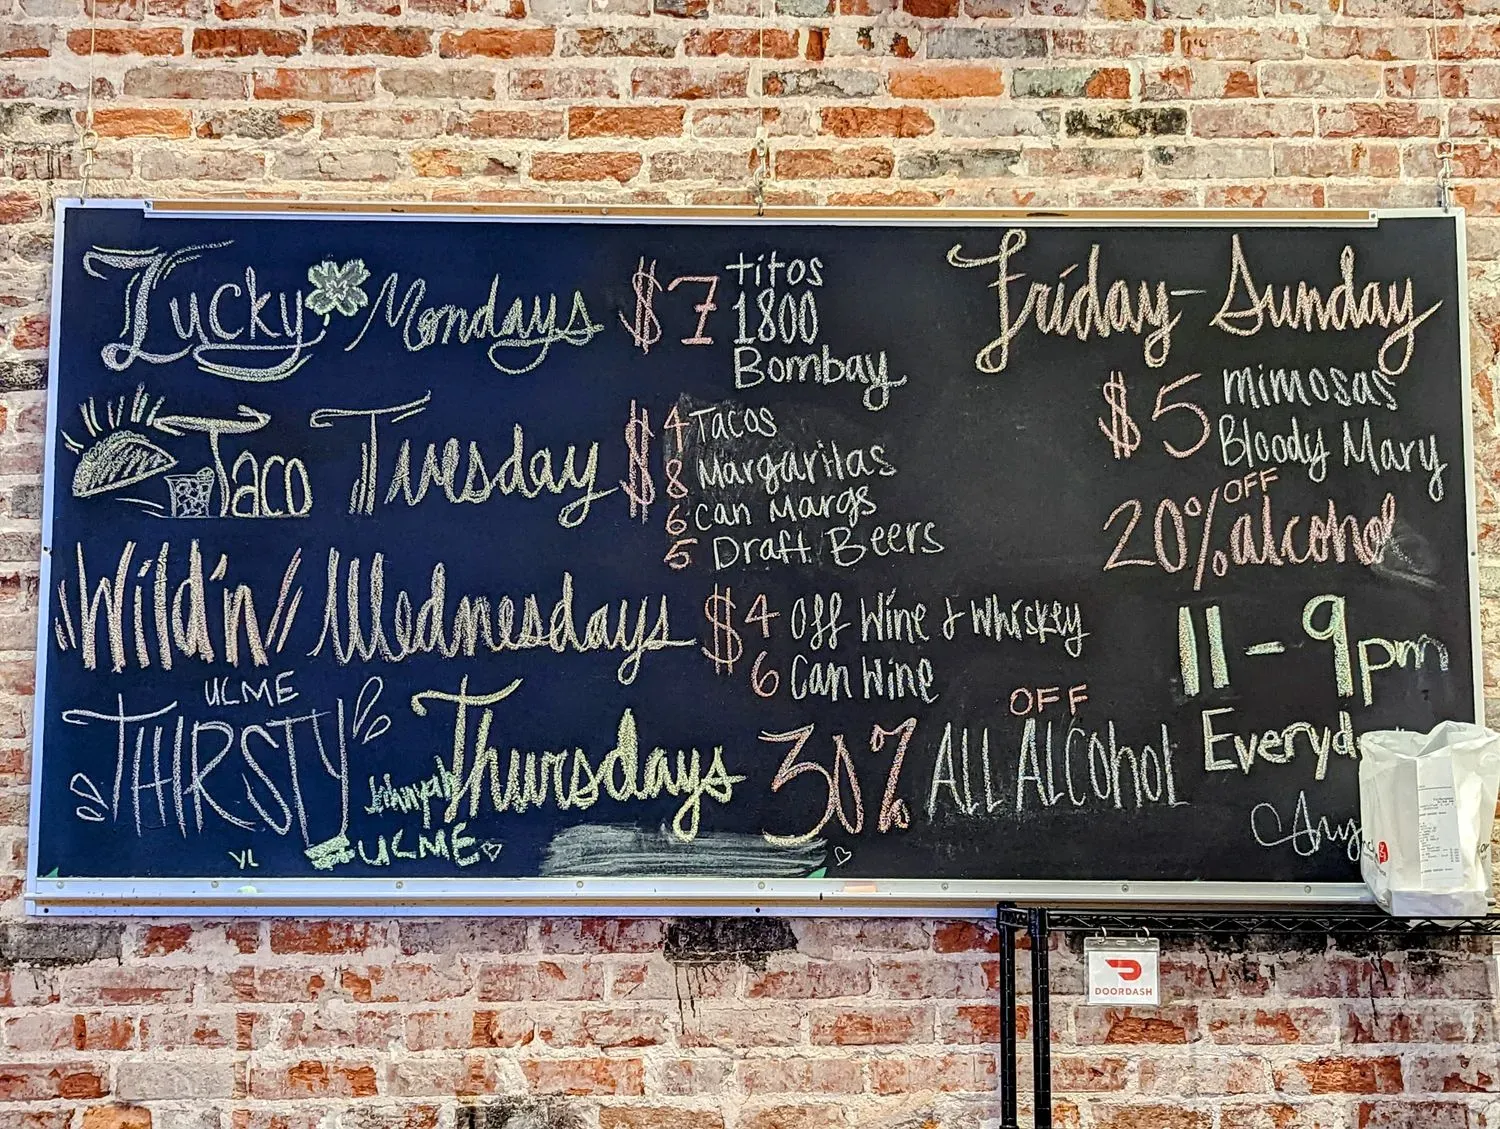 Lucky Mondays $7 titos
1800
Bombay
Taco Tuesday $4 Tacos
8 Margaritas
6 Can Margs
5 Draft Beers
Wild'n Wednesdays $4 Off Wine & Whiskey
6 Can Wine
UCME
THIRSTY Thursdays 30% OFF ALL ALCOhOL
UCME
VL
Friday-Sunday
$5 mimosas
Bloody Mary
20% OFF alcohol
11-9pm
Everyd
DOORDASH